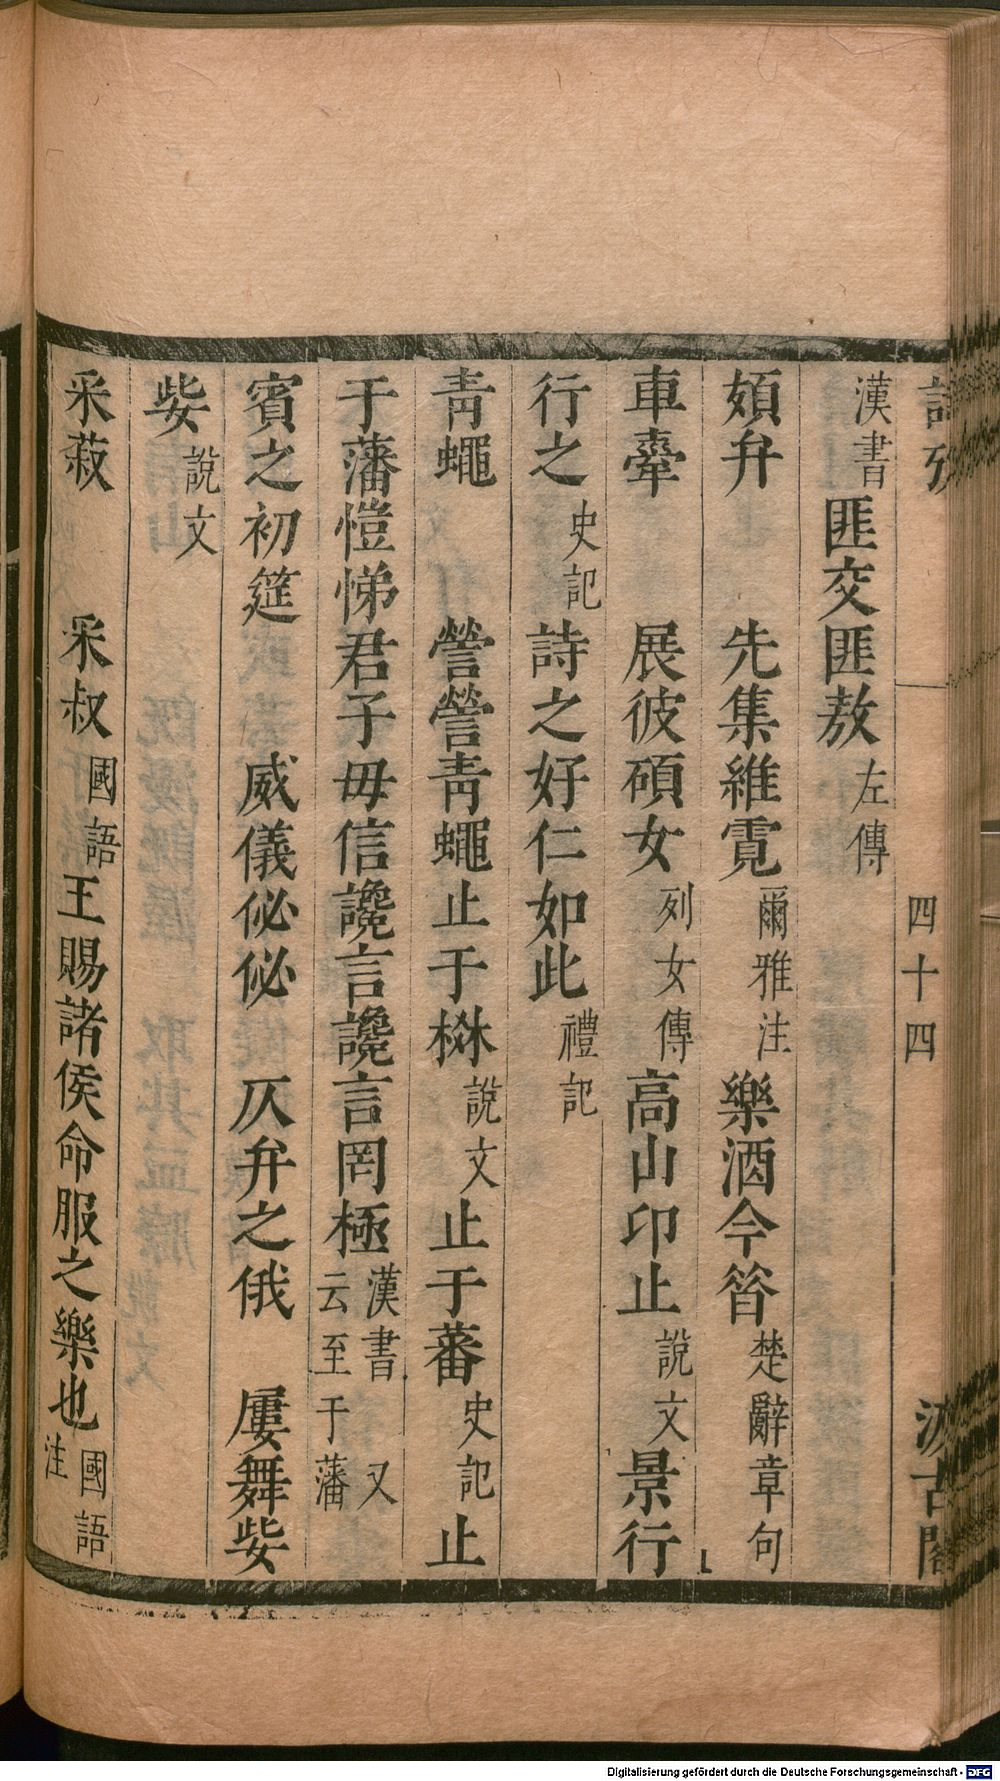 詩攷 四十四 汲古閣
漢書匪交匪敖左傳
頍弁 先集維霓爾雅注樂酒今昝楚辭章句
車舝 展彼碩女列女傳高山卬止說文景行
行之史記詩之好仁如此禮記
靑蠅 營營靑蠅止于棥說文止于蕃史記止
于藩愷悌君子毋信讒言讒言罔極漢書又云至于藩
賓之初筵 威儀佖佖 仄弁之俄 屢舞姕
姕說文
采菽 采叔國語王賜諸侯命服之樂也國語注
Digitalisierung gefördert durch die Deutsche Forschungsgemeinschaft - DFG